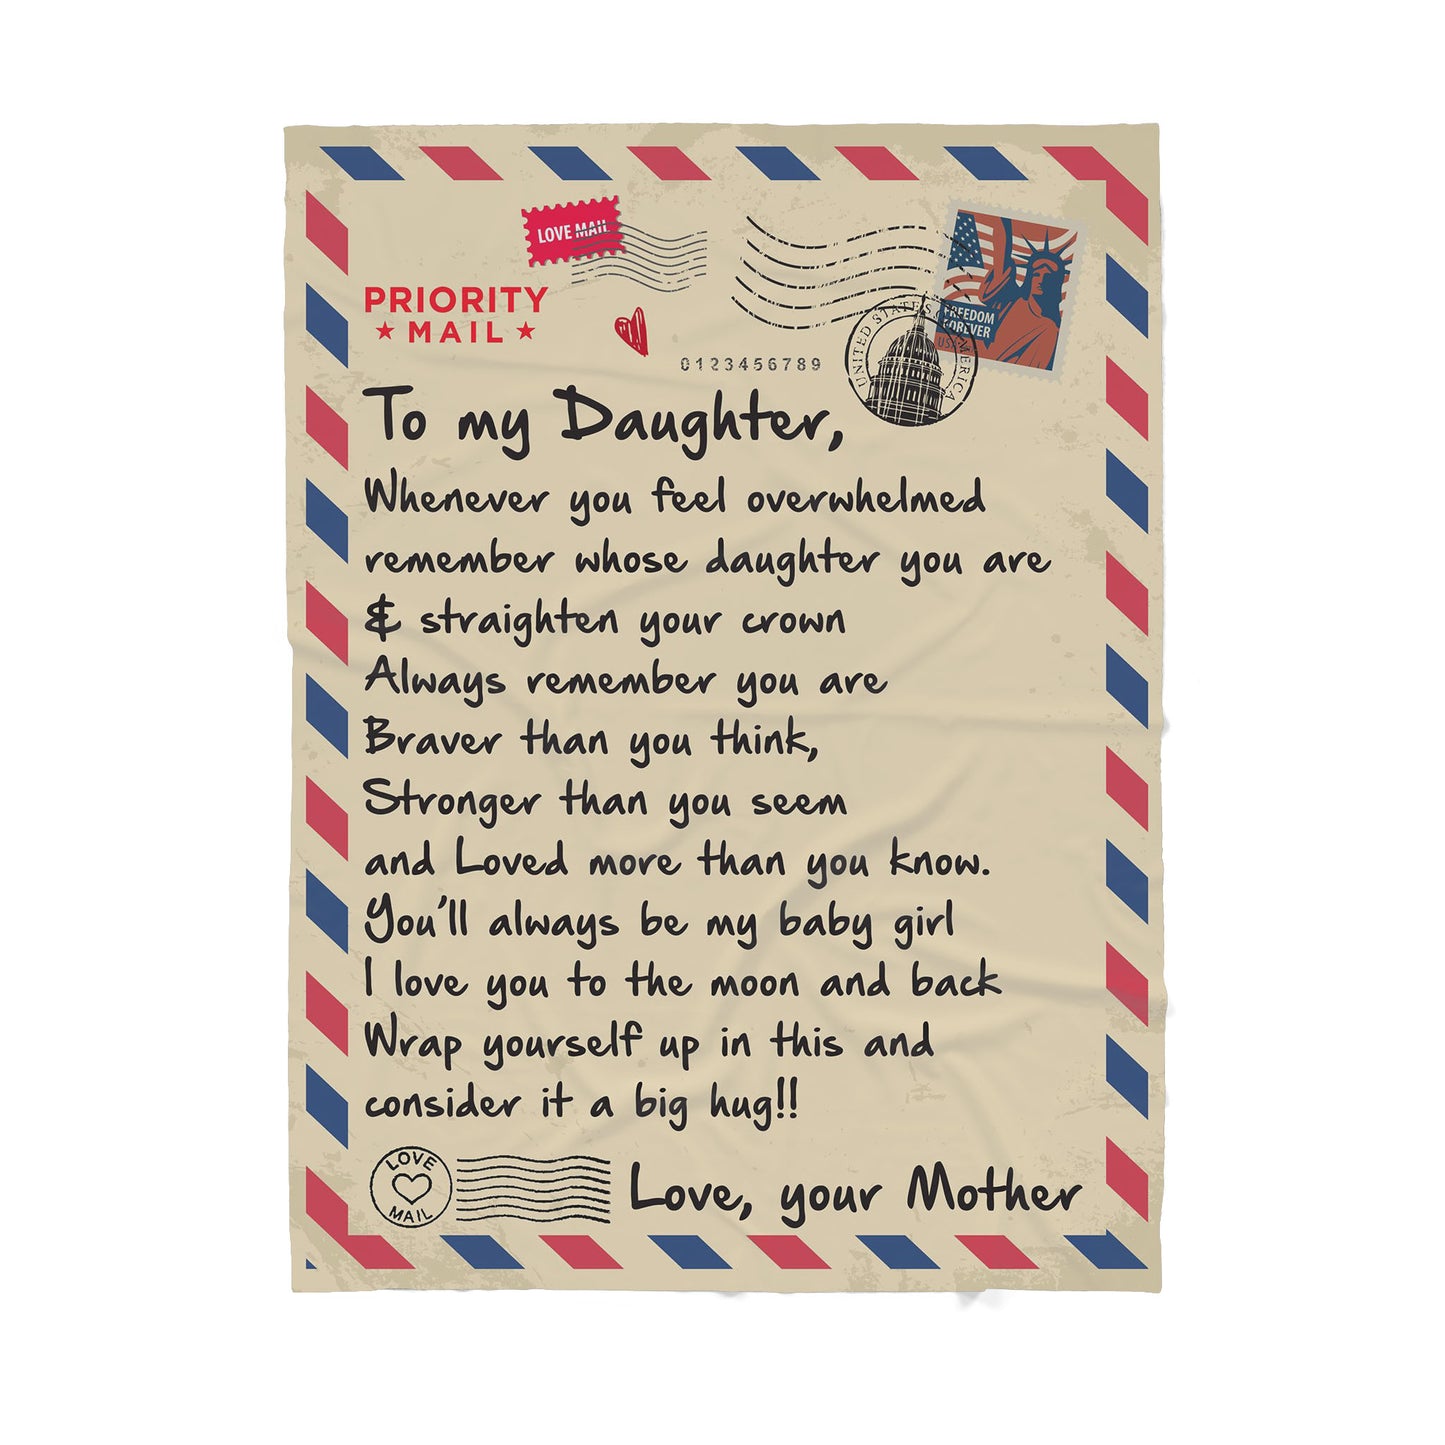 LOVE MAIL
PRIORITY
★ MAIL ★
FREEDOM
FOREVER
USA
UNITED STATES OF AMERICA
0123456789
To my Daughter,
Whenever you feel overwhelmed
remember whose daughter you are
& straighten your crown
Always remember you are
Braver than you think,
Stronger than you seem
and Loved more than you know.
You'll always be my baby girl
I love you to the moon and back
Wrap yourself up in this and
consider it a big hug!!
LOVE
MAIL
Love, your Mother